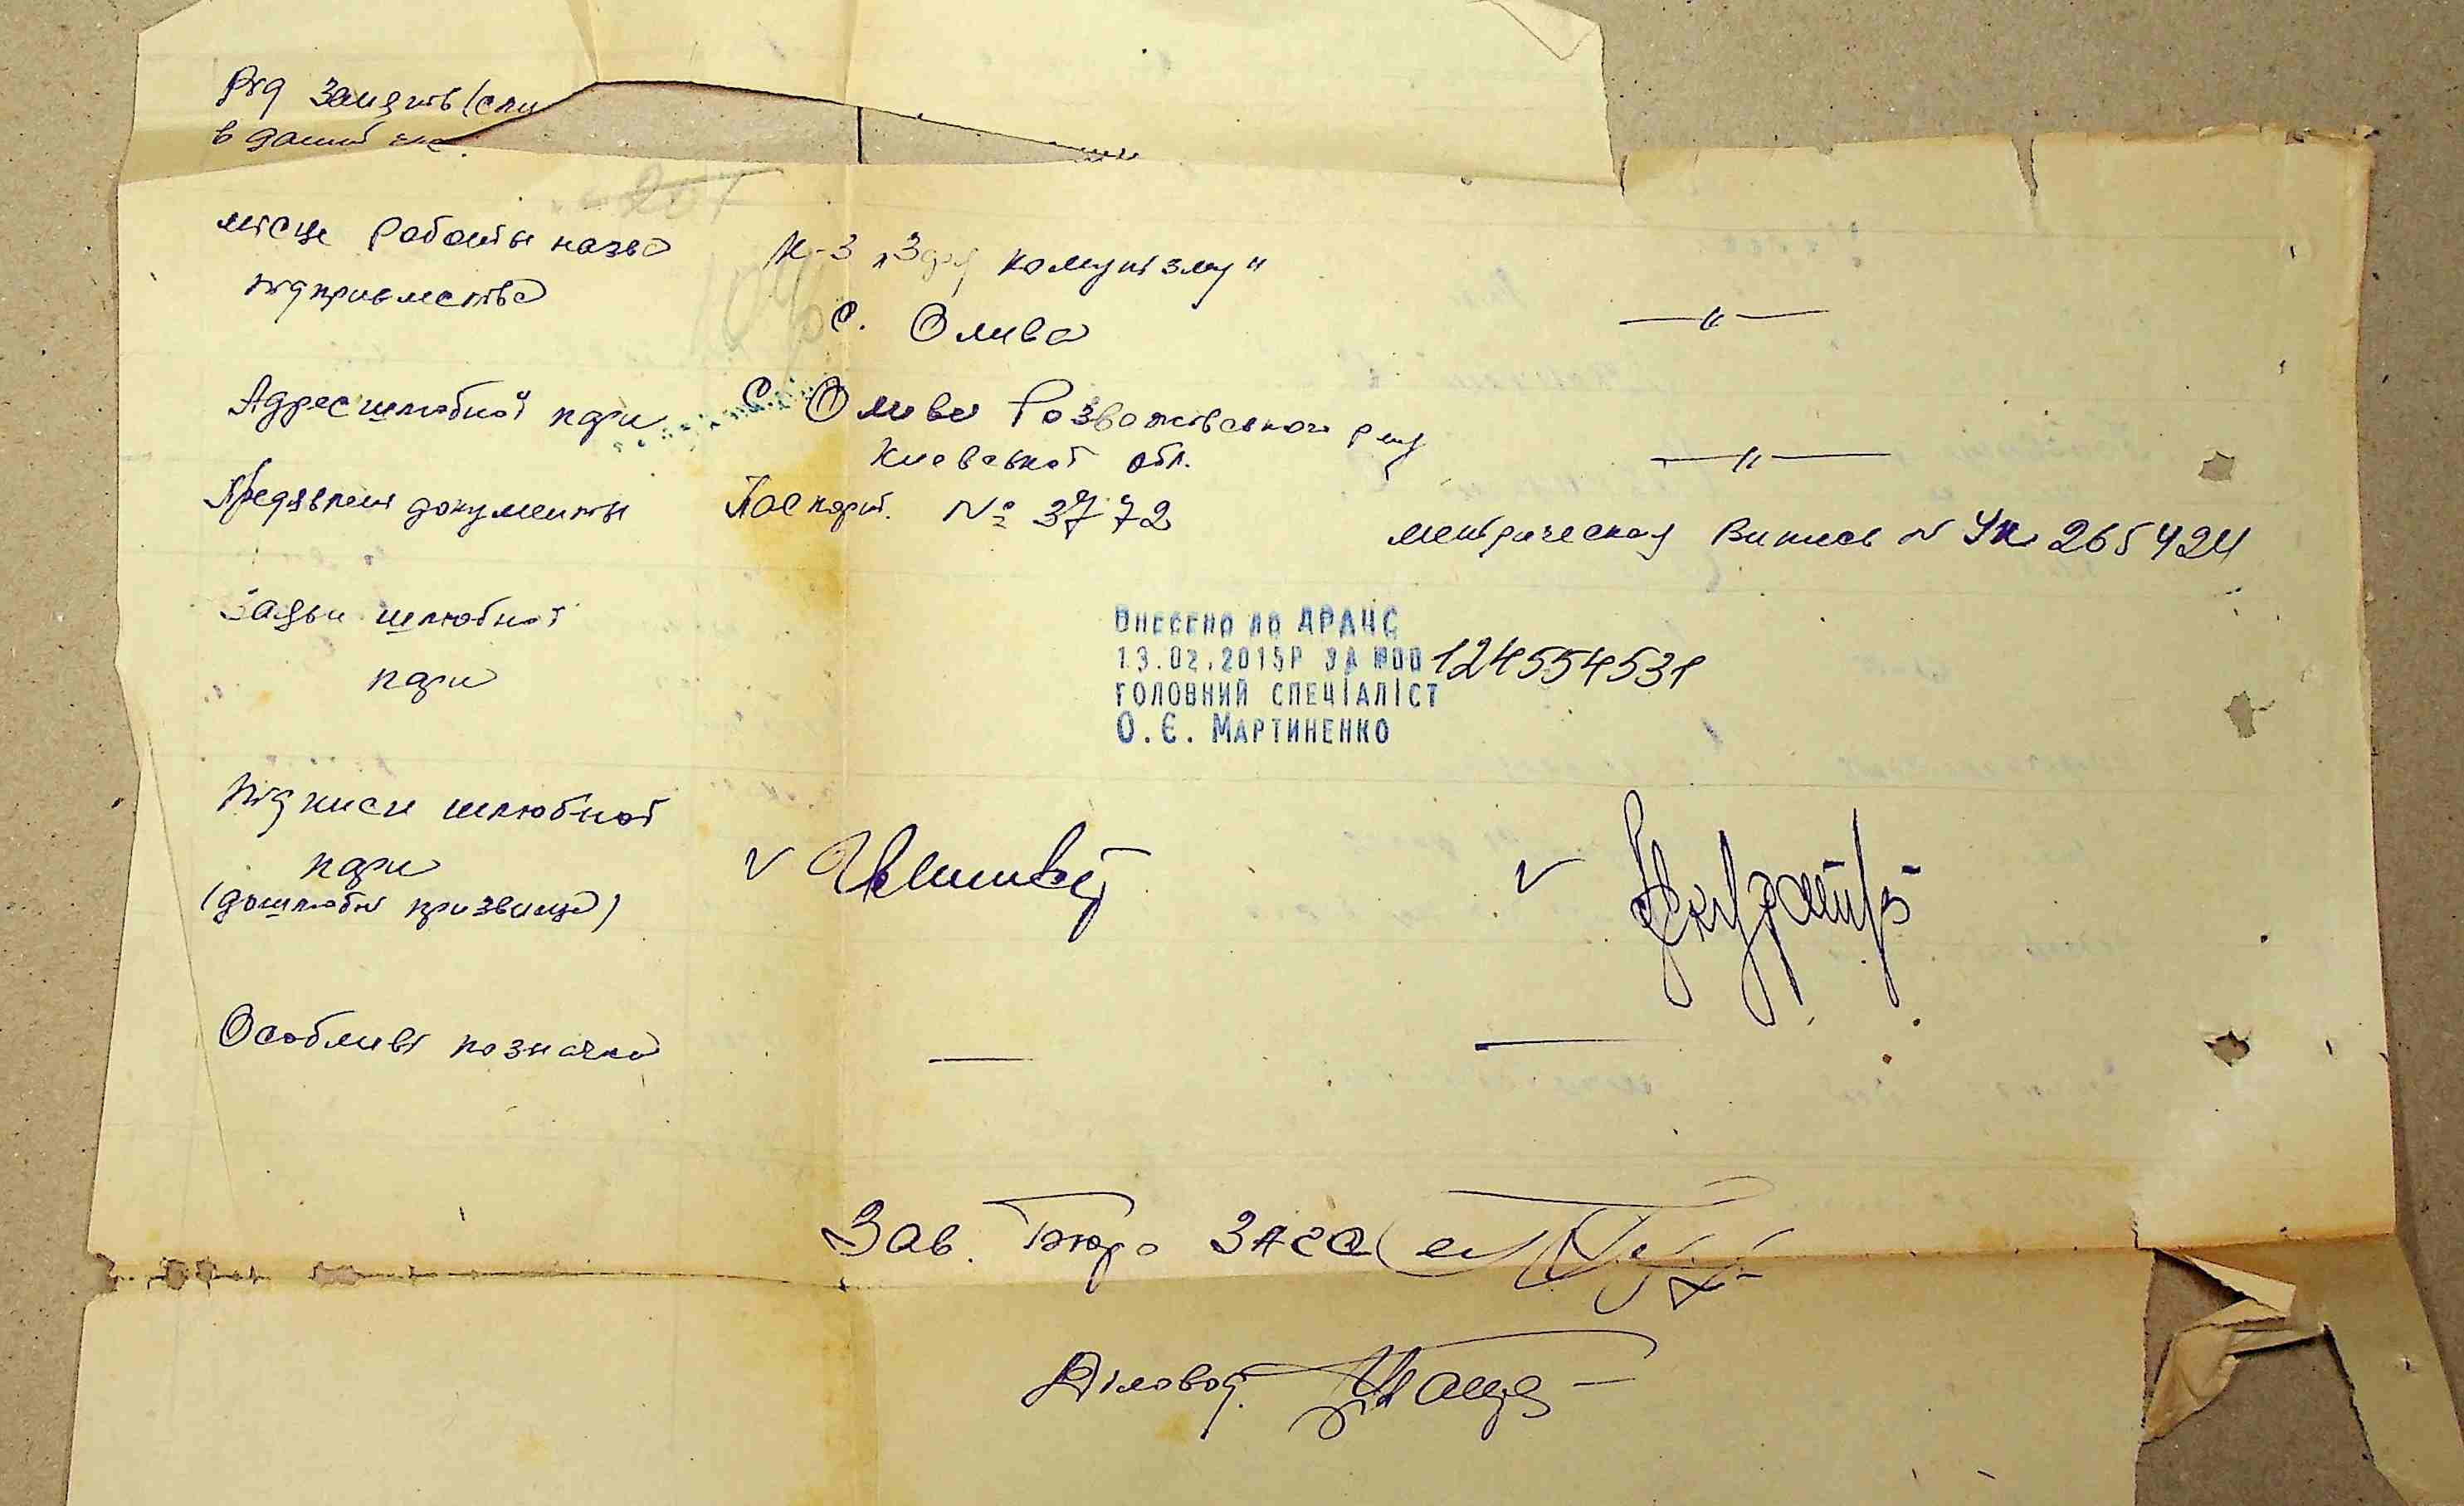 Рід занять (спи
в даний
місце работы назва
підприємства
к-з "Зоря комунізму"
с. Олива
—"—
Адрес шлюбної пари
с. Олива Розважівського р-ну
Київської обл.
—"—
Предявлені документы
Паспорт. № 3772
метрическая Випись № УК 265424
Заяви шлюбної
пари
Внесено до ДРАЦС
13.02.2015р за №00124554531
головний спеціаліст
О.Є. Мартиненко
Підписи шлюбної
пари
(дошлюбні призвища)
Особливі позначки
Зав. Бюро ЗАГС
Діловод.